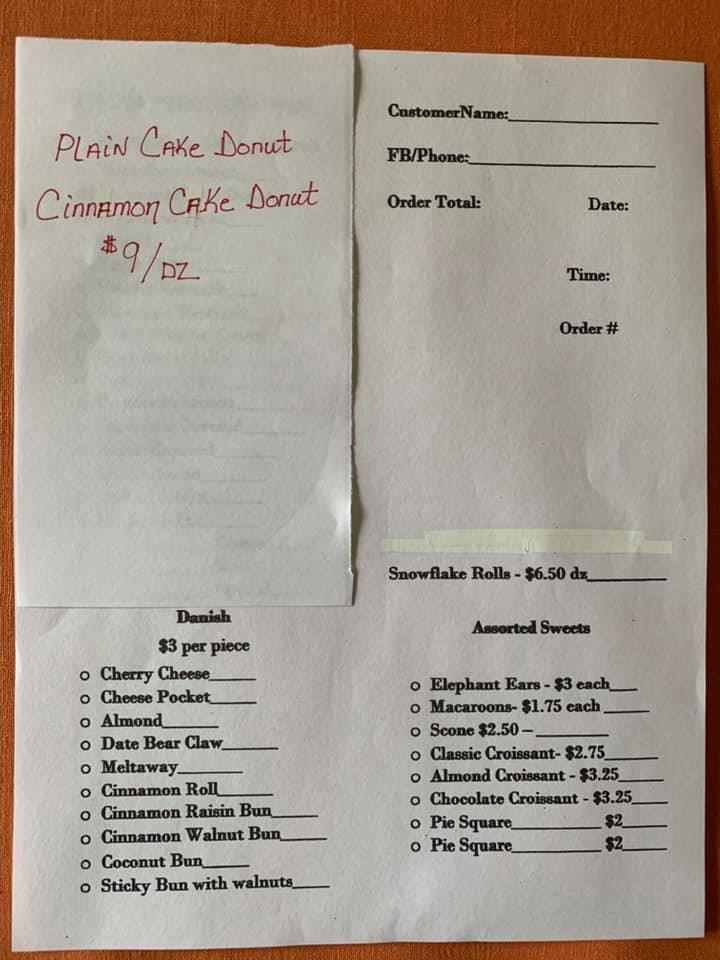 PLAIN CAKE Donut
CinnAmon CAKe Donut
$9/DZ
CustomerName:
FB/Phone:
Order Total:
Date:
Time:
Order #
Snowflake Rolls - $6.50 dz
Danish
$3 per piece
o Cherry Cheese
o Cheese Pocket
o Almond
o Date Bear Claw
o Meltaway
o Cinnamon Roll
o Cinnamon Raisin Bun
o Cinnamon Walnut Bun
o Coconut Bun
o Sticky Bun with walnuts
Assorted Sweets
o Elephant Ears - $3 each
o Macaroons- $1.75 each
o Scone $2.50 –
o Classic Croissant- $2.75
o Almond Croissant - $3.25
o Chocolate Croissant - $3.25
o Pie Square $2
o Pie Square $2